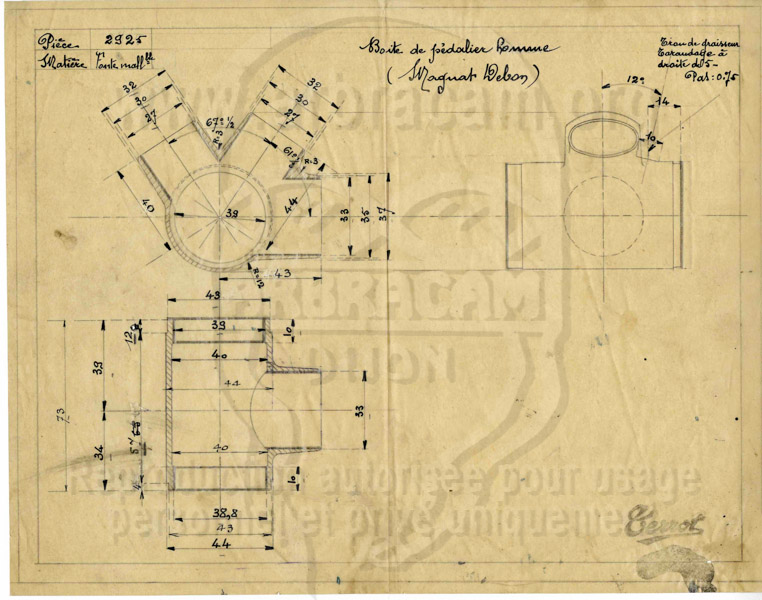 Pièce 2925
Matière Fonte mall ble
Boite de pédalier homme
(Magnat Debon)
Trou de graisseur
Taraudage à
droite de 5-
Pas: 0.75
12°
14
10
32
30
27
67° 1/2
R.3
32
30
27
61° 1/2
R.3
40
39
44
33
35
37
R=12
43
43
39
10
40
41
12
39
73
34
33
40
10
38,8
43
44
www.arbracam.org
ARBRACAM
DIJON
Reproduction autorisée pour usage
personnel et privé uniquement
Terrot